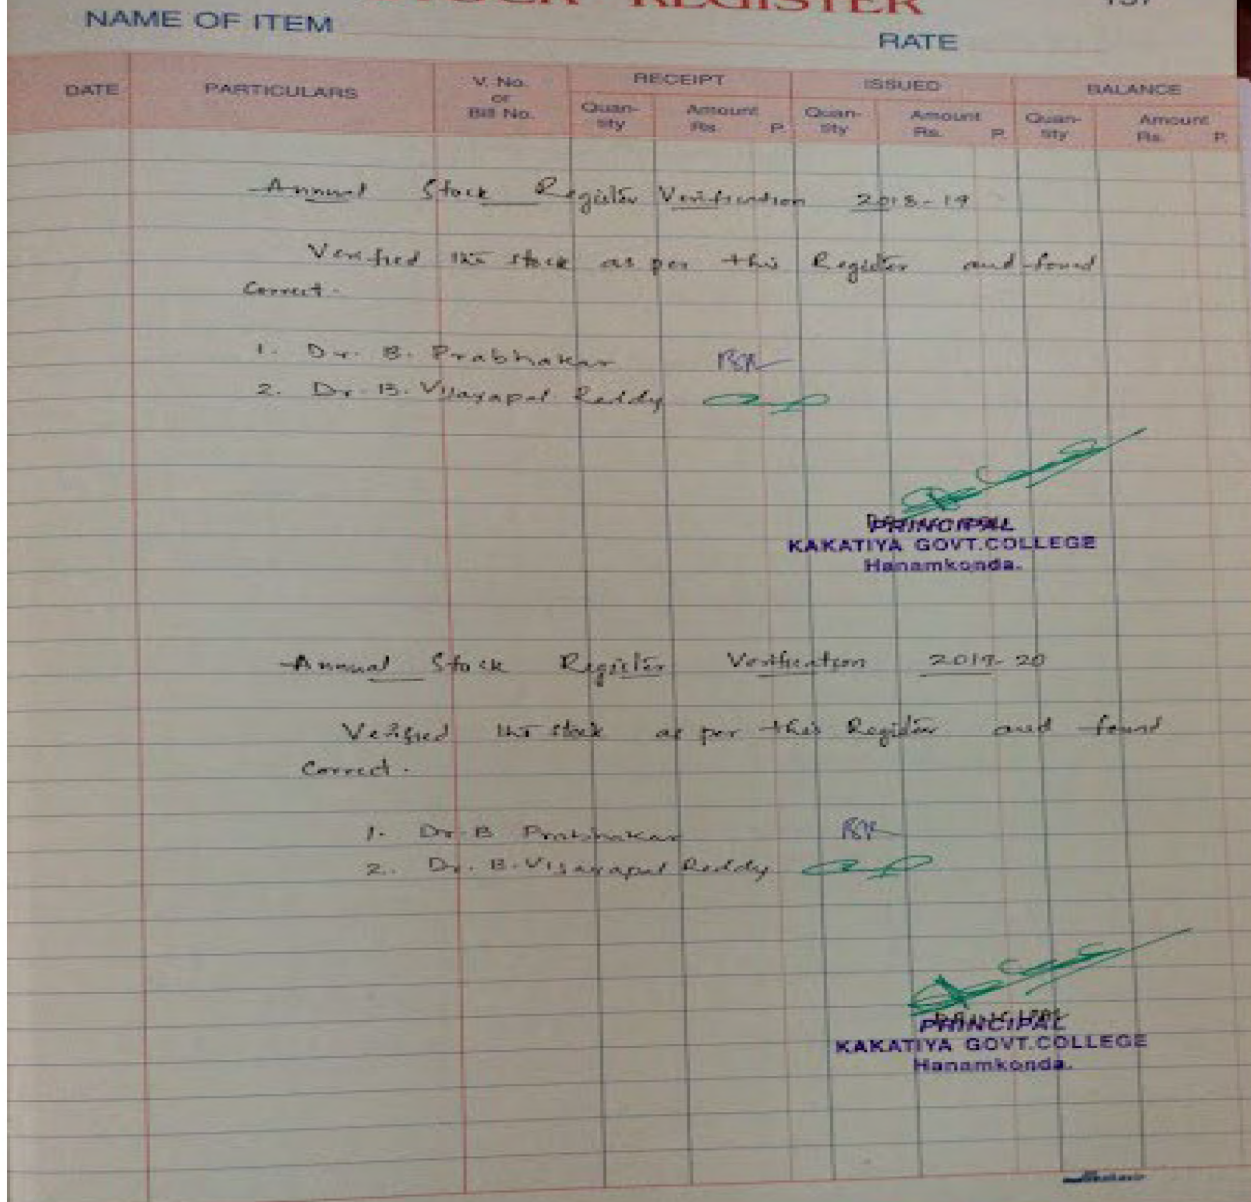 REGISTER
NAME OF ITEM
RATE
DATE PARTICULARS V. No. or Bill No. RECEIPT ISSUED BALANCE
Quan-tity Amount Rs. P. Quan-tity Amount Rs. P. Quan-tity Amount Rs. P.
Annual Stock Register Verification 2018-19
Verified the stock as per this Register and found
Correct.
1. Dr. B. Prabhakar
2. Dr. B. Vijayapal Reddy
PRINCIPAL
KAKATIYA GOVT.COLLEGE
Hanamkonda.
Annual Stock Register Verification 2019-20
Verified the stock as per this Register and found
Correct.
1. Dr. B Prabhakar
2. Dr. B. Vijayapal Reddy
PRINCIPAL
KAKATIYA GOVT.COLLEGE
Hanamkonda.